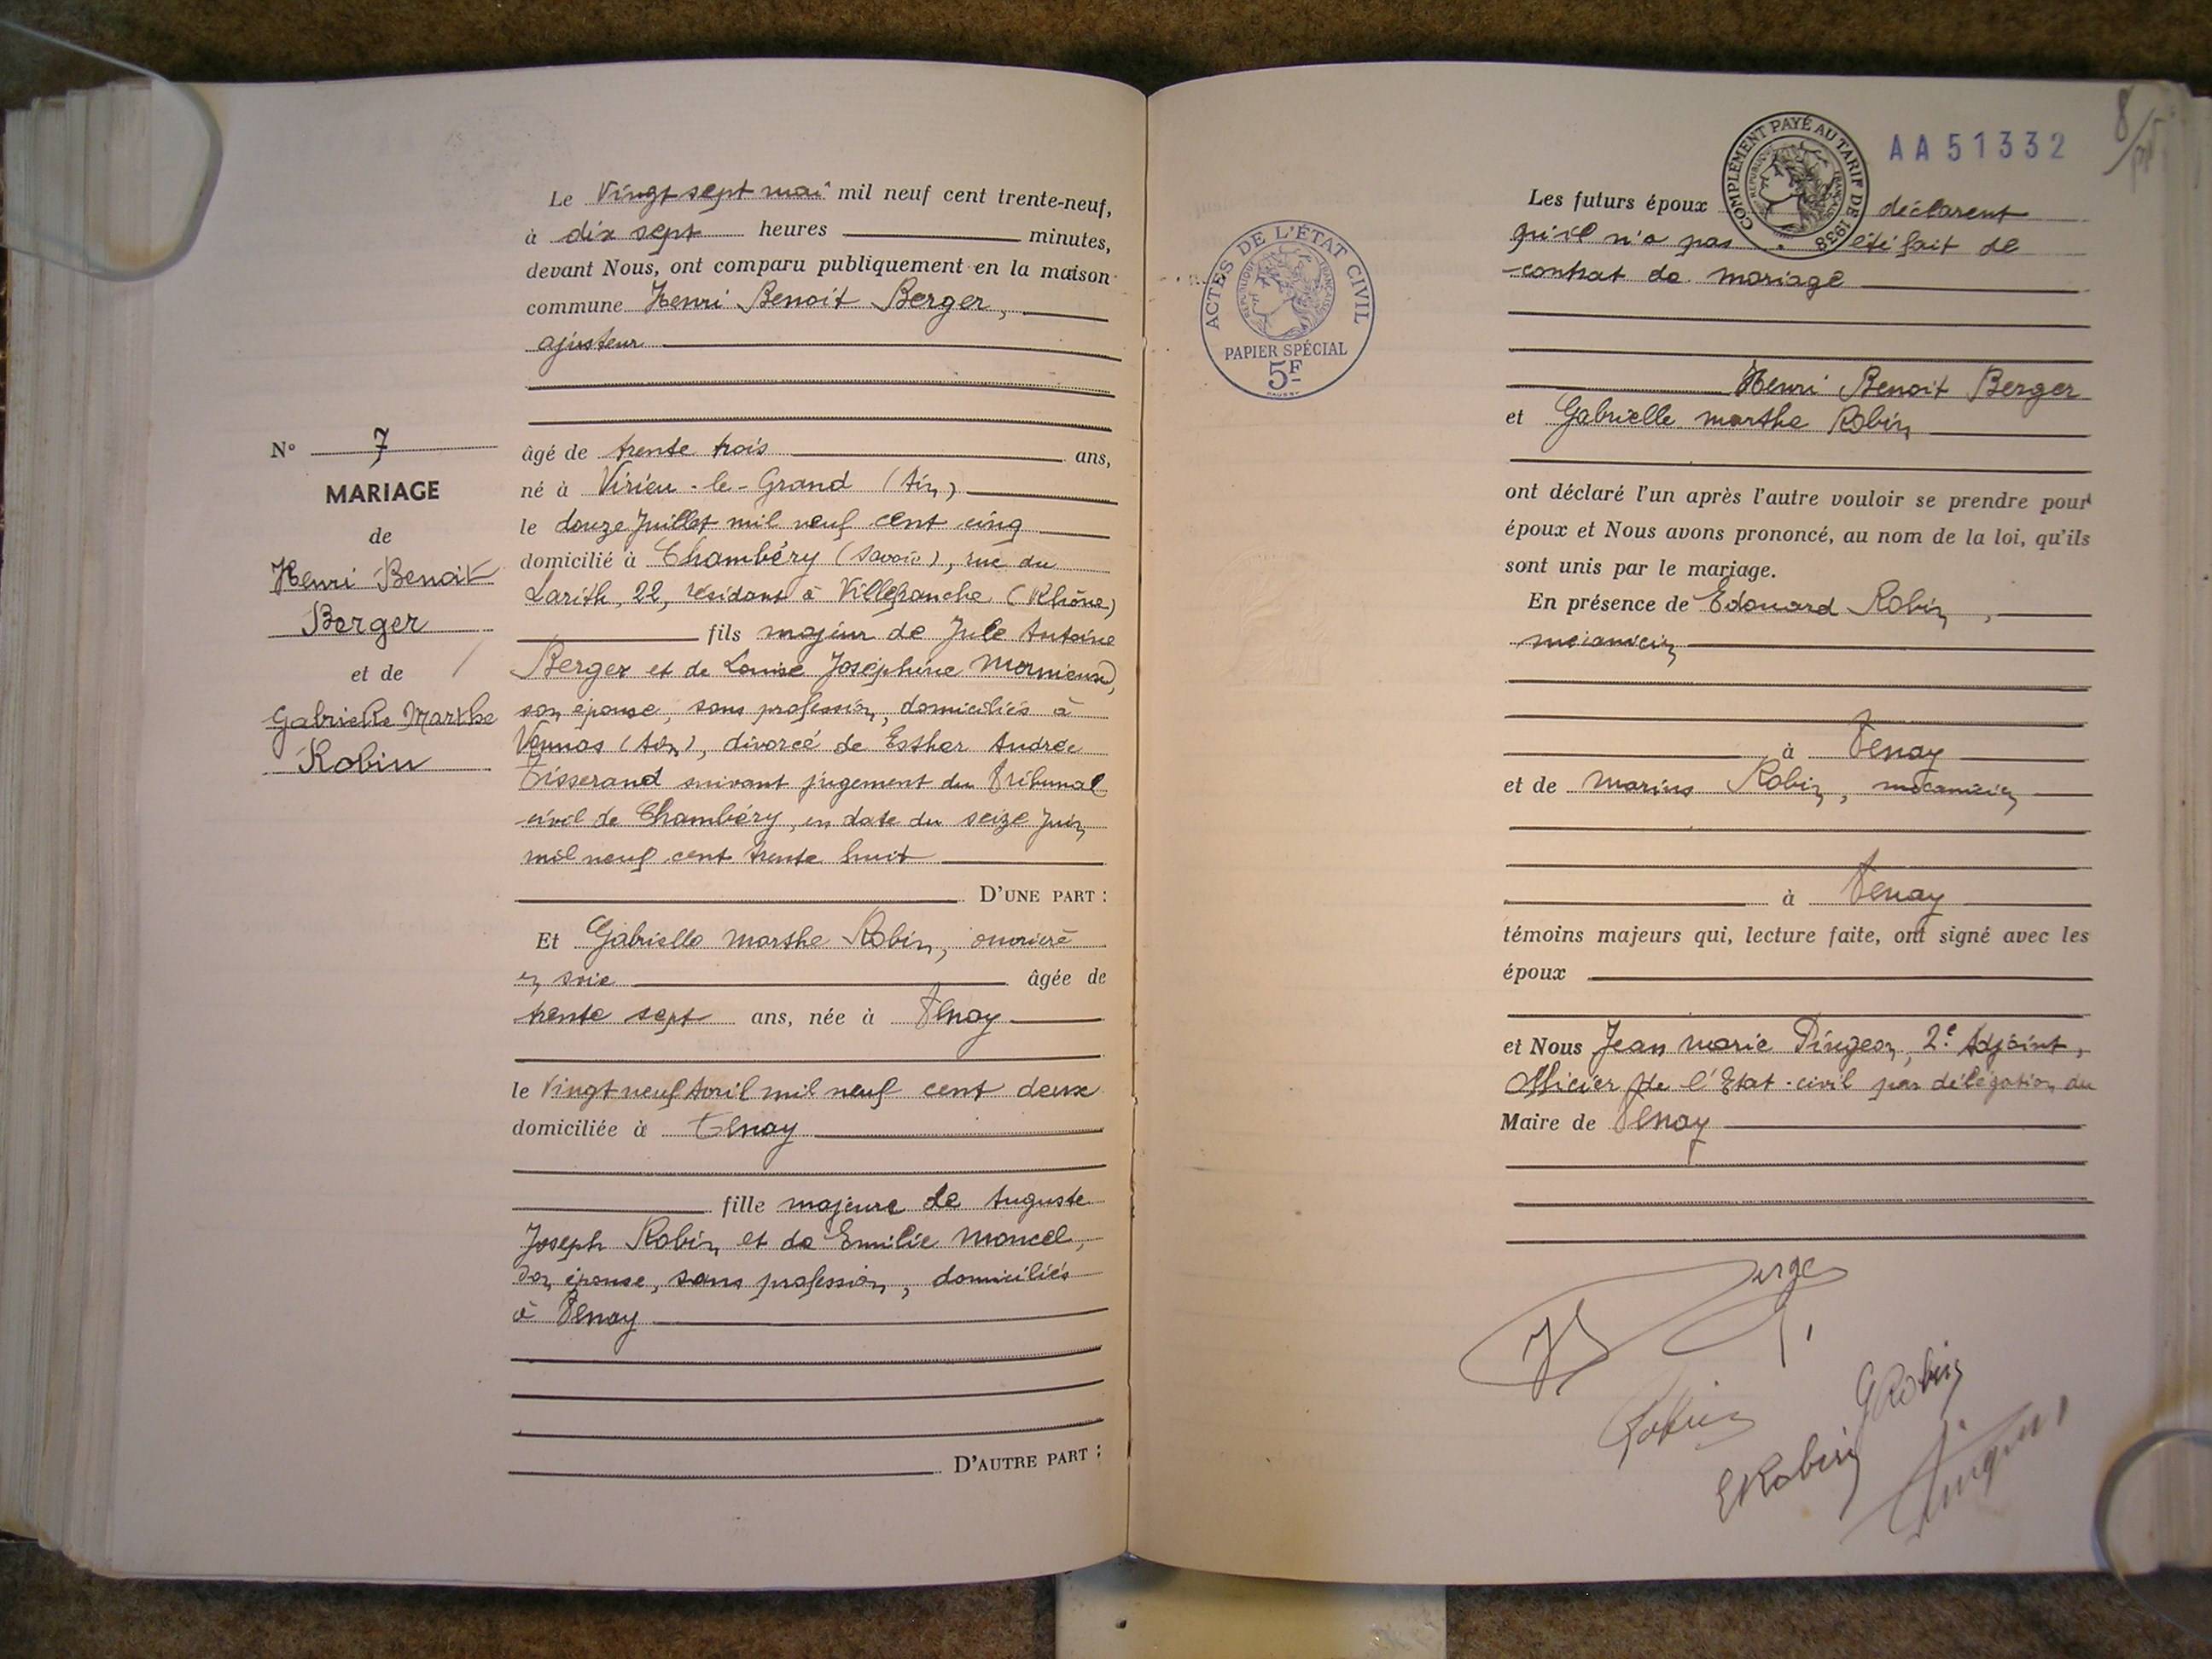 N° 7
MARIAGE
de
Henri Benoit
Berger
et de
Gabrielle Marthe
Robin
Le Vingt sept mai mil neuf cent trente-neuf,
à dix sept heures minutes,
devant Nous, ont comparu publiquement en la maison
commune Henri Benoit Berger,
ajusteur
âgé de trente trois ans,
né à Virieu-le-Grand (Ain)
le douze Juillet mil neuf cent cinq
domicilié à Chambéry (Savoie), rue du
Larith, 22, résidant à Villefranche (Rhône)
fils majeur de Jule Antoine
Berger et de Louise Joséphine
son épouse, sans profession, domiciliés à
Vonnas (Ain), divorcé de Esther Andrée
Tisserand suivant jugement du Tribunal
civil de Chambéry, en date du seize Juin
mil neuf cent trente huit
D'UNE PART :
Et Gabrielle Marthe Robin, ouvrière
en soie âgée de
trente sept ans, née à Tenay
le Vingt neuf Avril mil neuf cent deux
domiciliée à Tenay
fille majeure de Auguste
Joseph Robin et de Emilie Moncel,
son épouse, sans profession, domiciliés
à Tenay
D'AUTRE PART :
ACTES DE L'ÉTAT CIVIL
RÉPUBLIQUE FRANÇAISE
PAPIER SPÉCIAL
5F
COMPLÉMENT PAYÉ AU TARIF DE 1938
AA51332
8
Les futurs époux déclarent
qu'il n'a pas été fait de
contrat de mariage
Henri Benoit Berger
et Gabrielle Marthe Robin
ont déclaré l'un après l'autre vouloir se prendre pour
époux et Nous avons prononcé, au nom de la loi, qu'ils
sont unis par le mariage.
En présence de Edouard Robin,
mécanicien
à Tenay
et de Marius Robin, mécanicien
à Tenay
témoins majeurs qui, lecture faite, ont signé avec les
époux
et Nous Jean Marie Pingeon, 2e Adjoint,
Officier de l'Etat-civil par délégation du
Maire de Tenay
Berger
Robin
GRobin
ERobin